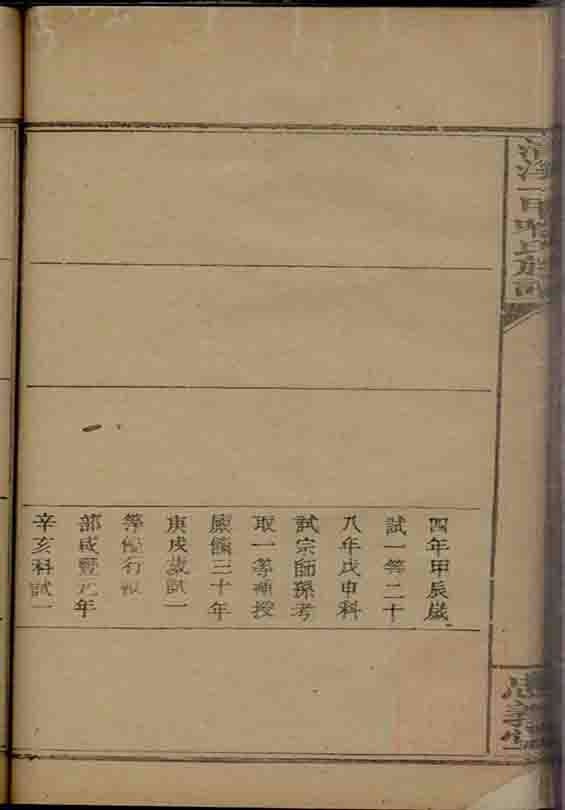 四年甲辰歲
試一等二十
八年戊申科
試宗師孫考
取一等補授
廩餼三十年
庚戌歲試一
等優行報
部咸豐元年
辛亥科試一
忠義堂